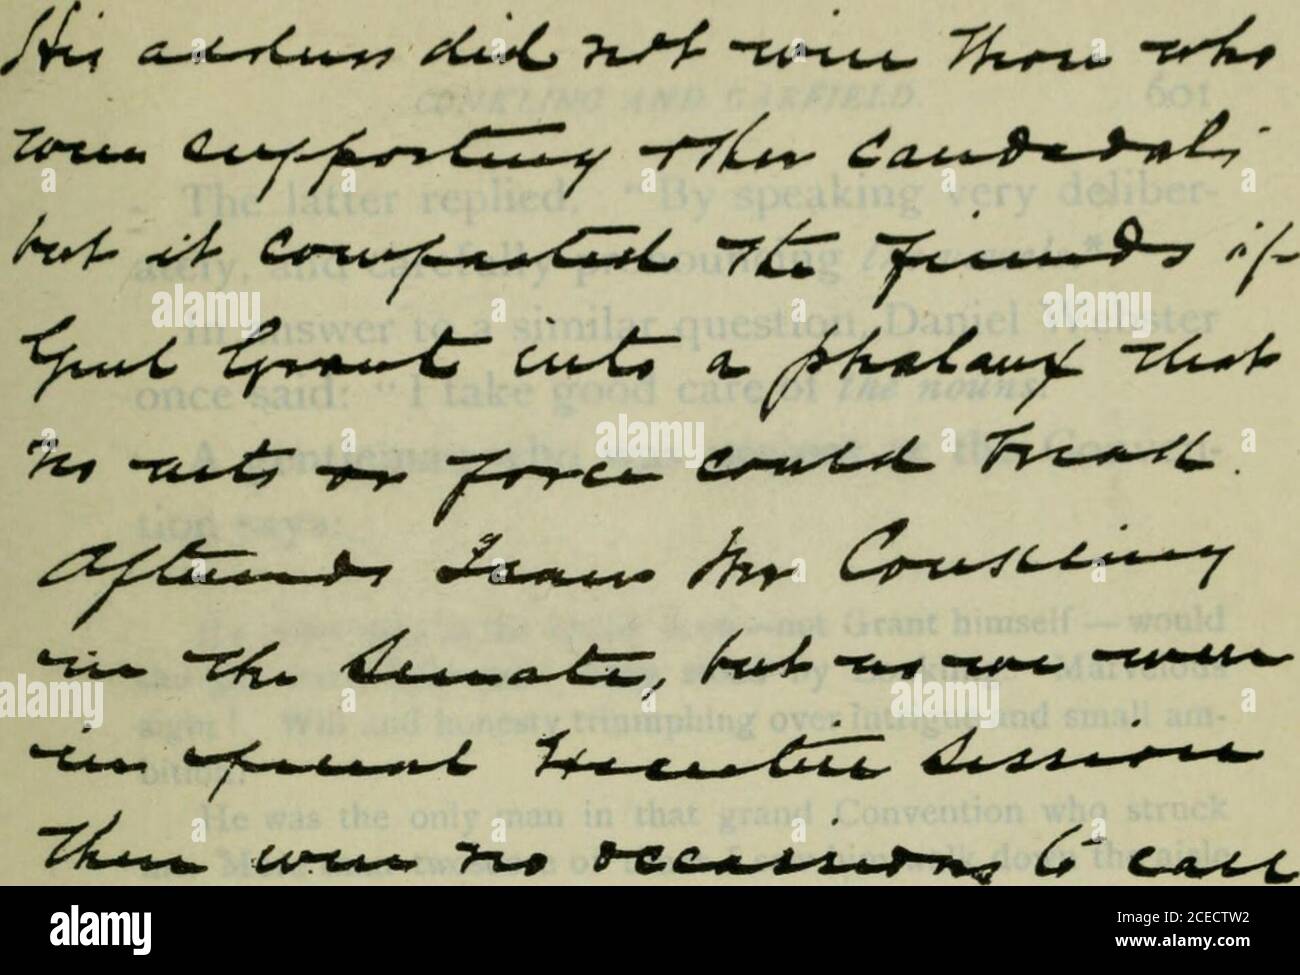 His address did not win those who
CONKLING AND GARFIELD. 601
were supporting other candidates
The latter replied, "By speaking very deliber-
but it compacted the friends of
ately, and carefully pronouncing
In answer to a similar question, Daniel Webster
Genl Grant into a phalanx that
once said: "I take good care of the nouns."
no arts or force could break.
A gentleman who was at the Conven-
tion says:
Afterwards I saw Mr Conkling
not Grant himself — would
in the Senate, but as we were
by Marvelous
sight! Will and honesty triumphing over intrigue and small am-
in special Executive Session
bition.
He was the only man in that grand Convention who struck
there were no occasions to call
down the aisle
alamy
Image ID: 2CECTW2
www.alamy.com